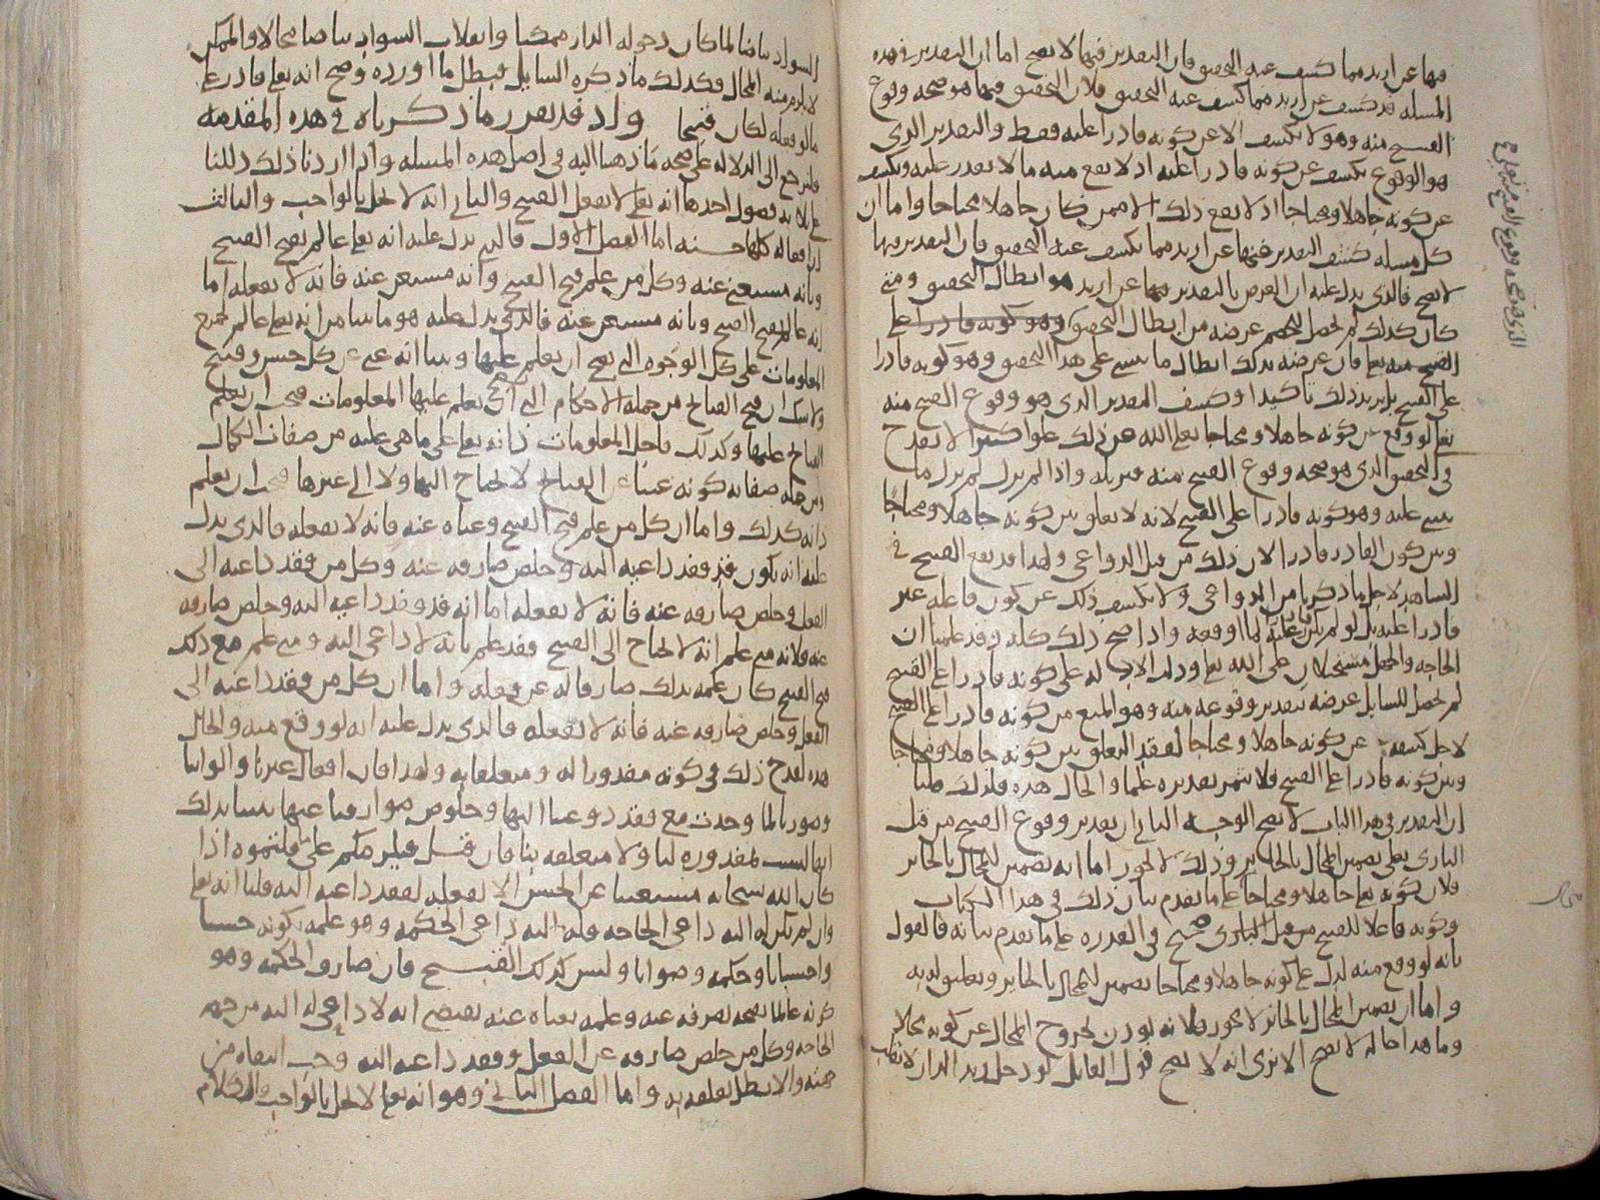 فيها عن اريد مما كشف عنه التحقيق فان التقدير فيها لا يصح اما ان التقدير في هذه
المسلة قد كشف عن اريد مما كشف عنه التحقيق فلان التحقيق فيها هو صحه وقوع
القبيح منه وهو لا يكشف الا عن كونه قادرا عليه فقط والتقدير الذي
هو الوقوع يكشف عن كونه قادرا عليه اذ لا يقع منه ما لا يقدر عليه ويكشف
عن كونه جاهلا ومحتاجا اذ لا يقع ذلك الا ممن كان جاهلا محتاجا واما ان
كل مسله كشف التقدير فيها عن اريد مما يكشف عنه التحقيق فان التقدير فيها
لا يصح فالذي يدل عليه ان الغرض بالتقدير فيها عن اريد هو ابطال التحقيق ومتى
كان كذلك لم يحصل للخصم غرضه من ابطال التحقيق وهو كونه قادرا على
القبيح منه تعالى فان غرضه بذلك ابطال ما يبنى على هذا التحقيق وهو كونه قادرا
على القبيح بل يريد ذلك تاكيدا وكشف التقدير الذي هو وقوع القبيح منه
تعالى لو وقع عن كونه جاهلا ومحتاجا تعالى الله عن ذلك علوا كبيرا لا يقدح
في التحقيق الذي هو صحه وقوع القبيح منه فيزيله واذا لم يزل لم يزل ما
يبنى عليه وهو كونه قادرا على القبيح لانه لا تعلق بين كونه جاهلا ومحتاجا
وبين كون القادر قادرا لان ذلك من قبل الدواعي ولهذا قد يقع القبيح في
الشاهد لاجل ما ذكرنا من الدواعي ولا يكشف ذلك عن كون فاعله غير
قادرا عليه بل لو لم يكن قادرا عليه لما اوقعه واذا صح ذلك كله وقد علمنا ان
الحاجه والجهل مستحيلان على الله تعالى ودلت الادله على كونه قادرا على القبيح
لم يحصل للسايل غرضه بتقدير وقوعه منه وهو المنع من كونه قادرا على القبيح
لاجل كشفه عن كونه جاهلا ومحتاجا لفقد التعلق بين كونه جاهلا ومحتاجا
وبين كونه قادرا على القبيح فلا يثمر تقديره علما والحال هذه فلذلك قلنا
ان التقدير في هذا الباب لا يصح الوجه الثاني ان تقدير وقوع القبيح من قبل
الباري تعالى تضمين المحال بالجايز وذلك لا يجوز اما انه تضمين المحال بالجايز
فلان كونه تعالى جاهلا ومحتاجا على ما تقدم بيان ذلك في هذا الكتاب
وكونه فاعلا للقبيح من قبل الباري صحيح في القدره على ما تقدم بيانه فالقول
بانه لو وقع منه لدل على كونه جاهلا ومحتاجا تضمين للمحال بالجايز وتعليق له به
واما ان تضمين المحال بالجايز لا يجوز فلانه يوذن بخروج المحال عن كونه محالا
وما هذا حاله لا يصح الا ترى انه لا يصح قول القايل لو دخل زيد الدار لانقلب
الذي هو صحه وقوع القبيح
محال
السواد بياضا لما كان دخوله الدار ممكنا وانقلاب السواد بياضا محالا والممكن
لا يلزم منه المحال فكذلك ما ذكره السايل فبطل ما اورده وصح انه تعالى قادر على
ما لو فعله لكان قبيحا واذ قد تقرر ما ذكرناه في هذه المقدمه
فلنرجع الى الدلاله على صحه ما ذهبنا اليه في اصل هذه المسله واذا اردنا ذلك دللنا
على ثلاثه فصول احدها انه تعالى لا يفعل القبيح والثاني انه لا يخل بالواجب والثالث
ان افعاله كلها حسنه اما الفصل الاول فالذي يدل عليه انه تعالى عالم بقبح القبيح
وبانه مستغن عنه وكل من علم قبح القبيح وانه مستغن عنه فانه لا يفعله اما
انه عالم بقبح القبيح وبانه مستغن عنه فالذي يدل عليه هو ما بينا من انه تعالى عالم بجميع
المعلومات على كل الوجوه التي يصح ان يعلم عليها وبينا انه غني عن كل حسن وقبيح
ولا شك ان قبح القبايح من جمله الاحكام التي يصح ان تعلم عليها المعلومات فيجب ان يعلم
القبايح عليها وكذلك فاجل المعلومات ذاته تعالى على ما هي عليه من صفات الكمال
ومن جمله صفاته كونه غنيا عن القبايح لا يحتاج اليها ولا الى غيرها فيجب ان يعلم
ذاته كذلك واما ان كل من علم قبح القبيح وغناه عنه فانه لا يفعله فالذي يدل
عليه انه يكون قد فقد داعيه اليه وخلص صارفه عنه وكل من فقد داعيه الى
الفعل وخلص صارفه عنه فانه لا يفعله اما انه قد فقد داعيه اليه وخلص صارفه
عنه فلانه متى علم انه لا يحتاج الى القبيح فقد علم بانه لا داعي اليه ومتى علم مع ذلك
قبح القبيح كان علمه بذلك صارفا له عن فعله واما ان كل من فقد داعيه الى
الفعل وخلص صارفه عنه فانه لا يفعله فالذي يدل عليه انه لو وقع منه والحال
هذه لقدح ذلك في كونه مقدورا له ومتعلقا به ولهذا فان افعال غيرنا والواننا
وصورنا لما وجدت مع فقد دواعينا اليها وخلوص صوارفنا عنها علمنا بذلك
انها ليست مقدوره لنا ولا متعلقه بنا فان قيل فيلزمكم على ما قلتموه اذا
كان الله سبحانه مستغنيا عن الحسن الا يفعله لفقد داعيه اليه قلنا انه تعالى
وان لم يكن له اليه داعي الحاجه فله اليه داعي الحكمه وهو علمه بكونه حسنا
واحسانا وحكمه وصوابا وليس كذلك القبيح فان صارف الحكمه وهو
كونه عالما بقبحه يصرفه عنه وعلمه بغناه عنه يقتضي انه لا داعي له اليه من جهه
الحاجه وكل من خلص صارفه عن الفعل وفقد داعيه اليه وجب انتفاه من
جهته والا بطل تعلقه به واما الفصل الثاني وهو انه تعالى لا يخل بالواجب فالكلام